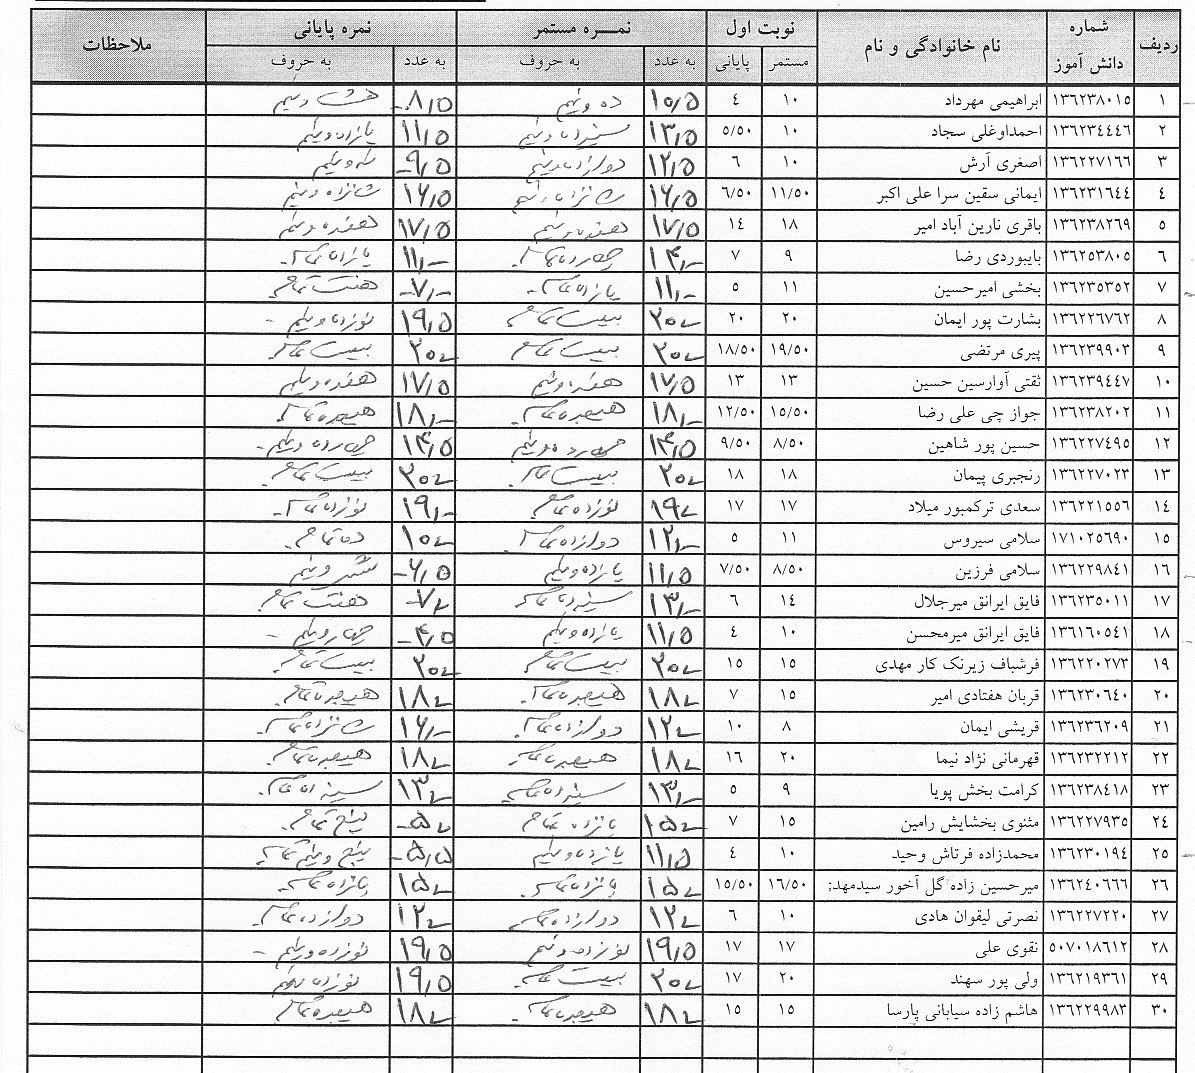 ردیف شماره دانش آموز نام خانوادگی و نام نوبت اول نمـــره مستمر نمره پایانی ملاحظات
مستمر پایانی به عدد به حروف به عدد به حروف
۱ ۱۳۶۲۳۸۰۱۵ ابراهیمی مهرداد ۱۰ ٤ ۱۰/۵ ده و نیم ۸/۵ هشت و نیم
۲ ۱۳۶۲۳٤٤٤۶ احمداوغلی سجاد ۱۰ ۵/۵۰ ۱۳/۵ سیزده و نیم ۱۱/۵ یازده و نیم
۳ ۱۳۶۲۲۷۱۶۶ اصغری آرش ۱۰ ۶ ۱۲/۵ دوازده و نیم ۹/۵ نه و نیم
٤ ۱۳۶۲۳۱۶٤٤ ایمانی سقین سرا علی اکبر ۱۱/۵۰ ۶/۵۰ ۱۶/۵ شانزده و نیم ۱۶/۵ شانزده و نیم
۵ ۱۳۶۲۳۸۲۶۹ باقری نارین آباد امیر ۱۸ ۱٤ ۱۷/۵ هفده و نیم ۱۷/۵ هفده و نیم
۶ ۱۳۶۲۵۳۸۰۵ بایبوردی رضا ۹ ۷ ۱۴/- چهارده تمام ۱۱/- یازده تمام
۷ ۱۳۶۲۳۵۳۵۲ بخشی امیرحسین ۱۱ ۵ ۱۱/- یازده تمام ۷/- هفت تمام
۸ ۱۳۶۲۲۶۷۶۲ بشارت پور ایمان ۲۰ ۲۰ ۲۰ بیست تمام ۱۹/۵ نوزده و نیم
۹ ۱۳۶۲۳۹۹۰۳ پیری مرتضی ۱۹/۵۰ ۱۸/۵۰ ۲۰ بیست تمام ۲۰ بیست تمام
۱۰ ۱۳۶۲۳۹٤٤۷ ثقتی آوارسین حسین ۱۳ ۱۳ ۱۷/۵ هفده و نیم ۱۷/۵ هفده و نیم
۱۱ ۱۳۶۲۳۸۲۰۲ جواز چی علی رضا ۱۵/۵۰ ۱۲/۵۰ ۱۸/- هیجده تمام ۱۸/- هیجده تمام
۱۲ ۱۳۶۲۲۷٤۹۵ حسین پور شاهین ۸/۵۰ ۹/۵۰ ۱۴/۵ چهارده و نیم ۱۴/۵ چهارده و نیم
۱۳ ۱۳۶۲۲۷۰۲۳ رنجبری پیمان ۱۸ ۱۸ ۲۰ بیست تمام ۲۰ بیست تمام
۱٤ ۱۳۶۲۲۱۵۵۶ سعدی ترکمبور میلاد ۱۷ ۱۷ ۱۹ نوزده تمام ۱۹/- نوزده تمام
۱۵ ۱۷۱۰۲۵۶۹۰ سلامی سیروس ۱۱ ۵ ۱۲/- دوازده تمام ۱۰ ده تمام
۱۶ ۱۳۶۲۲۹۸٤۱ سلامی فرزین ۸/۵۰ ۷/۵۰ ۱۱/۵ یازده و نیم ۶/۵ شش و نیم
۱۷ ۱۳۶۲۳۵۰۱۱ فایق ایرانق میرجلال ۱٤ ۶ ۱۳/- سیزده تمام ۷ هفت تمام
۱۸ ۱۳۶۱۶۰۵٤۱ فایق ایرانق میرمحسن ۱۰ ٤ ۱۱/۵ یازده و نیم ۴/۵ چهار و نیم
۱۹ ۱۳۶۲۲۰۲۷۳ فرشباف زیرنک کار مهدی ۱۵ ۱۵ ۲۰ بیست تمام ۲۰ بیست تمام
۲۰ ۱۳۶۲۳۰۶٤۰ قربان هفتادی امیر ۱۵ ۷ ۱۸ هیجده تمام ۱۸ هیجده تمام
۲۱ ۱۳۶۲۳۶۲۰۹ قریشی ایمان ۸ ۱۰ ۱۲ دوازده تمام ۱۶/- شانزده تمام
۲۲ ۱۳۶۲۳۲۲۱۲ قهرمانی نژاد نیما ۲۰ ۱۶ ۱۸ هیجده تمام ۱۸ هیجده تمام
۲۳ ۱۳۶۲۳۸٤۱۸ کرامت بخش پویا ۹ ۵ ۱۳/- سیزده تمام ۱۳ سیزده تمام
۲٤ ۱۳۶۲۲۷۹۳۵ مثنوی بخشایش رامین ۱۵ ۷ ۱۵ پانزده تمام ۵ پنج تمام
۲۵ ۱۳۶۲۳۰۱۹٤ محمدزاده فرتاش وحید ۱۰ ٤ ۱۱/۵ یازده و نیم ۵/۵ پنج و نیم تمام
۲۶ ۱۳۶۲٤۰۶۶۶ میرحسین زاده گل آخور سیدمهد: ۱۶/۵۰ ۱۵/۵۰ ۱۵ پانزده تمام ۱۵ پانزده تمام
۲۷ ۱۳۶۲۲۷۲۲۰ نصرتی لیقوان هادی ۱۰ ۶ ۱۲ دوازده تمام ۱۲ دوازده تمام
۲۸ ۵۰۷۰۱۸۶۱۲ نقوی علی ۱۷ ۱۷ ۱۹/۵ نوزده و نیم ۱۹/۵ نوزده و نیم
۲۹ ۱۳۶۲۱۹۳۶۱ ولی پور سهند ۲۰ ۱۷ ۲۰ بیست تمام ۱۹/۵ نوزده و نیم
۳۰ ۱۳۶۲۲۹۹۸۳ هاشم زاده سیابانی پارسا ۱۵ ۱۵ ۱۸ هیجده تمام ۱۸ هیجده تمام